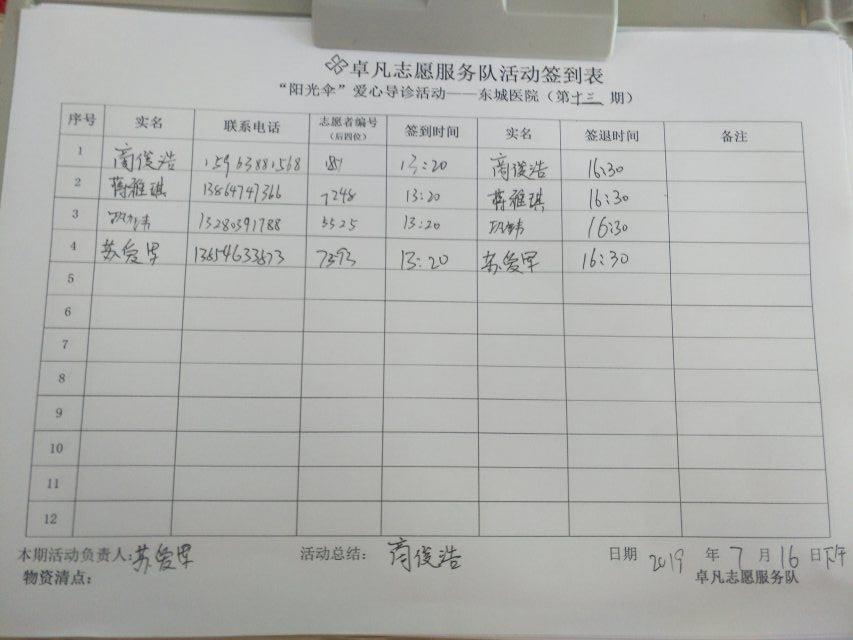 卓凡志愿服务队活动签到表
“阳光伞”爱心导诊活动——东城医院（第十三期）
序号 实名 联系电话 志愿者编号（后四位） 签到时间 实名 签退时间 备注
1 商俊浩 15963881568 187 13:20 商俊浩 16:30
2 蒋雅琪 13864747366 7248 13:20 蒋雅琪 16:30
3 13280391788 5525 13:20 16:30
4 苏爱军 13654633673 7393 13:20 苏爱军 16:30
5
6
7
8
9
10
11
12
本期活动负责人:苏爱军 活动总结： 商俊浩 日期 2019 年 7 月 16 日下午
物资清点： 卓凡志愿服务队